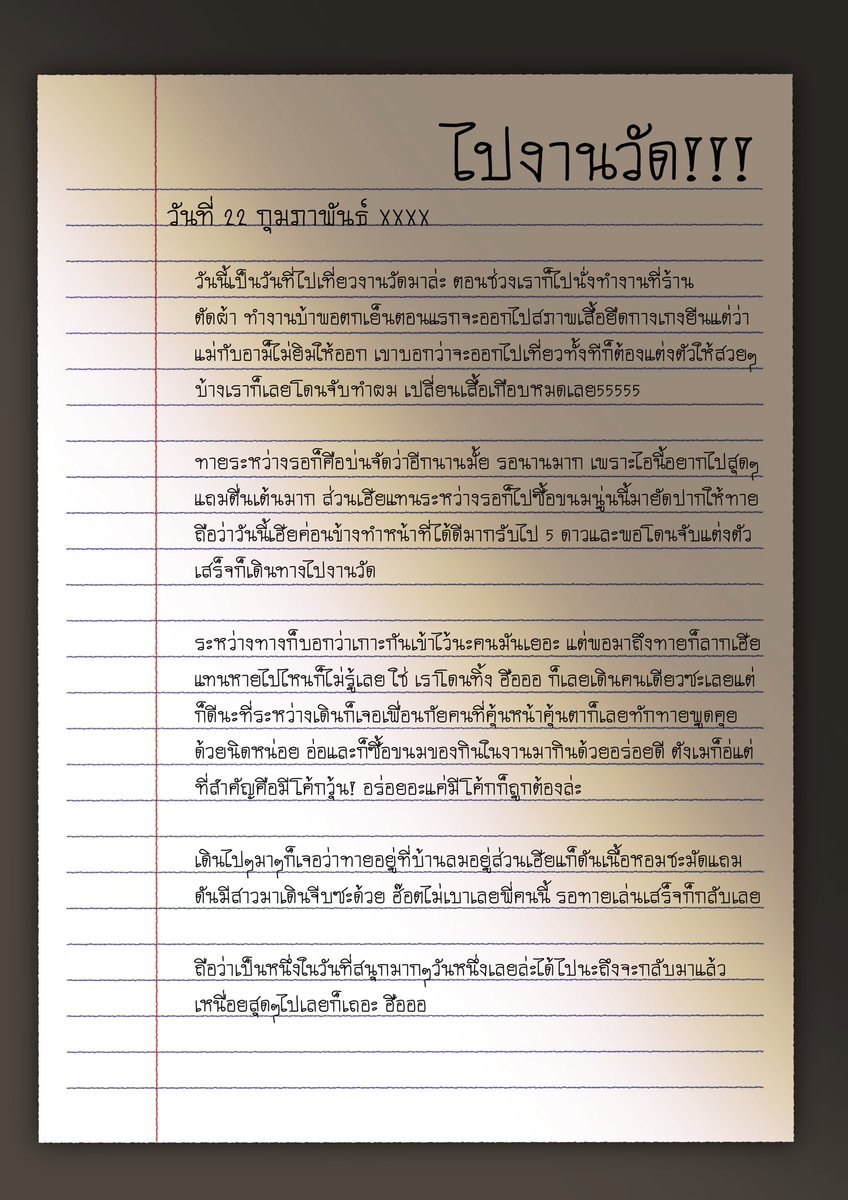 ไปงานวัด!!!
วันที่ 22 กุมภาพันธ์ xxxx
วันนี้เป็นวันที่ไปเที่ยวงานวัดมาล่ะ ตอนช่วงเราก็ไปนั่งทำงานที่ร้าน
ตัดผ้า ทำงานบ้าพอตกเย็นตอนแรกจะออกไปสภาพเสื้อยืดกางเกงยีนแต่ว่า
แม่กับอาม็ไม่ยิมให้ออก เขาบอกว่าจะออกไปเที่ยวทั้งทีก็ต้องแต่งตัวให้สวยๆ
บ้างเราก็เลยโดนจับทำผม เปลี่ยนเสื้อเกือบหมดเลย55555
ทายระหว่างรอก็คือบ่นจัดว่าอีกนานมั้ย รอนานมาก เพราะไอนี้อยากไปสุดๆ
แถมตื่นเต้นมาก ส่วนเฮียแทนระหว่างรอก็ไปซื้อขนมนู่นนี้มายัดปากให้ทาย
ถือว่าวันนี้เฮียค่อนข้างทำหน้าที่ได้ดีมากรับไป 5 ดาวและพอโดนจับแต่งตัว
เสร็จก็เดินทางไปงานวัด
ระหว่างทางก็บอกว่าเกาะกันเข้าไว้นะคนมันเยอะ แต่พอมาถึงทายก็ลากเฮีย
แทนหายไปไหนก็ไม่รู้เลย ใช่ เราโดนทิ้ง ฮือออ ก็เลยเดินคนเดียวซะเลยแต่
ก็ดีนะที่ระหว่างเดินก็เจอเพื่อนกัยคนที่คุ้นหน้าคุ้นตาก็เลยทักทายพูดคุย
ด้วยนิดหน่อย อ่อและก็ซื้อขนมของกินในงานมากินด้วยอร่อยดี ตังเมก็อ่แต่
ที่สำคัญคือมีโค้กวุ้น! อร่อยอะแค่มีโค้กก็ถูกต้องล่ะ
เดินไปๆมาๆก็เจอว่าทายอยู่ที่บ้านลมอยู่ส่วนเฮียแก็ดันเนื้อหอมชะมัดแถม
ดันมีสาวมาเดินจีบซะด้วย ฮ๊อตไม่เบาเลยพี่คนนี้ รอทายเล่นเสร็จก็กลับเลย
ถือว่าเป็นหนึ่งในวันที่สนุกมากๆวันหนึ่งเลยล่ะได้ไปนะถึงจะกลับมาแล้ว
เหนื่อยสุดๆไปเลยก็เถอะ ฮือออ